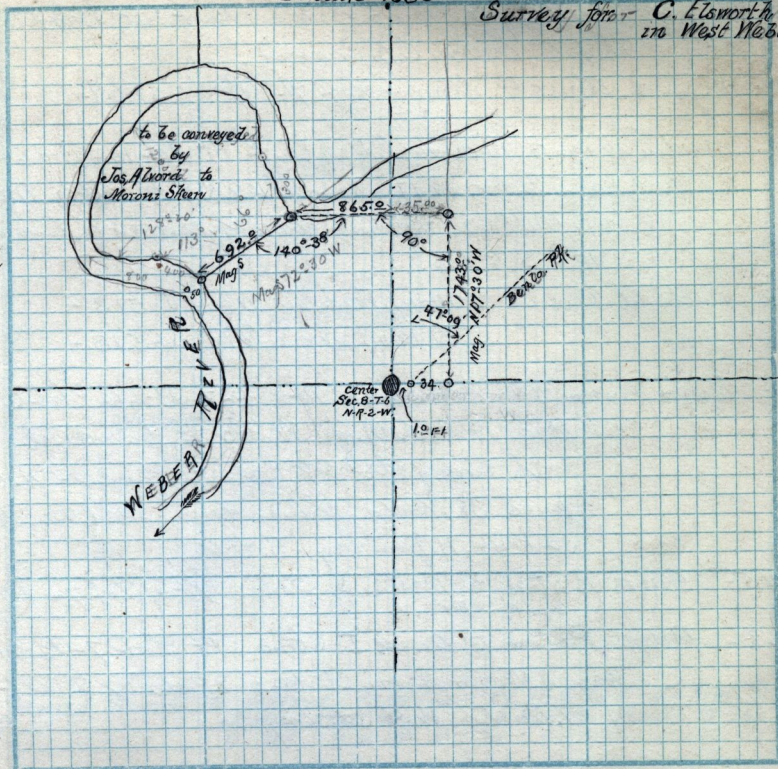 Survey for C. Elsworth
in West Web
to be conveyed
by
Jos. Alvord to
Moroni Skeen
865.0
135.00
90°
692.0
140°-38'
Mag S
Mag S 72°-30 W
128°20'
113°
1743.0
Mag. N 17°-30' W
47°09
Ben Lo. P.K.
34
center
Sec. 8-T-6
N-R-2-W.
1.0 Ft
WEBER
RIVER